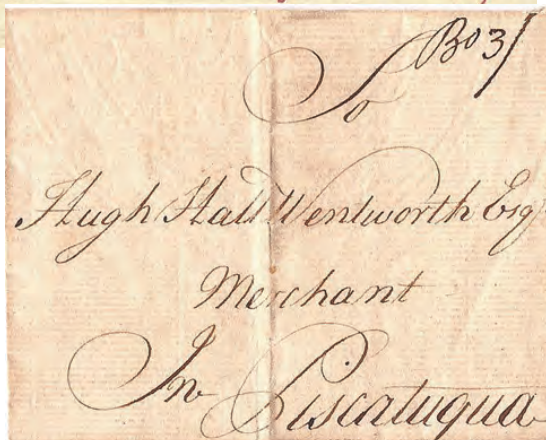 Bo 3/
To
Hugh Hall Wentworth Esqr
Merchant
In Piscatuqua